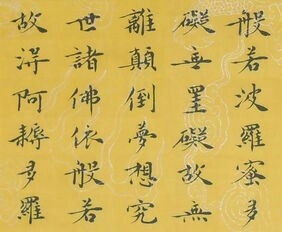 般若波羅蜜多
礙無罣礙故無
離顛倒夢想究
世諸佛依般若
故淂阿耨多羅